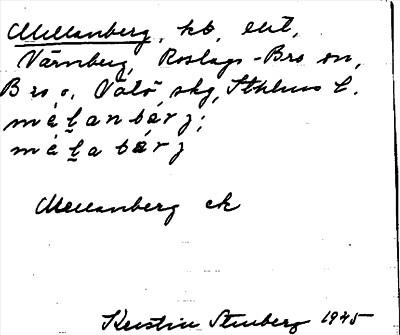 Mellanberg, kb, ekt,
Värnberg, Roslags-Bro sn,
Bro o. Vätö skg, Sthlms l.
mèlanbárj;
mèlabárj
Mellanberg ek
Kerstin Stenberg 1945